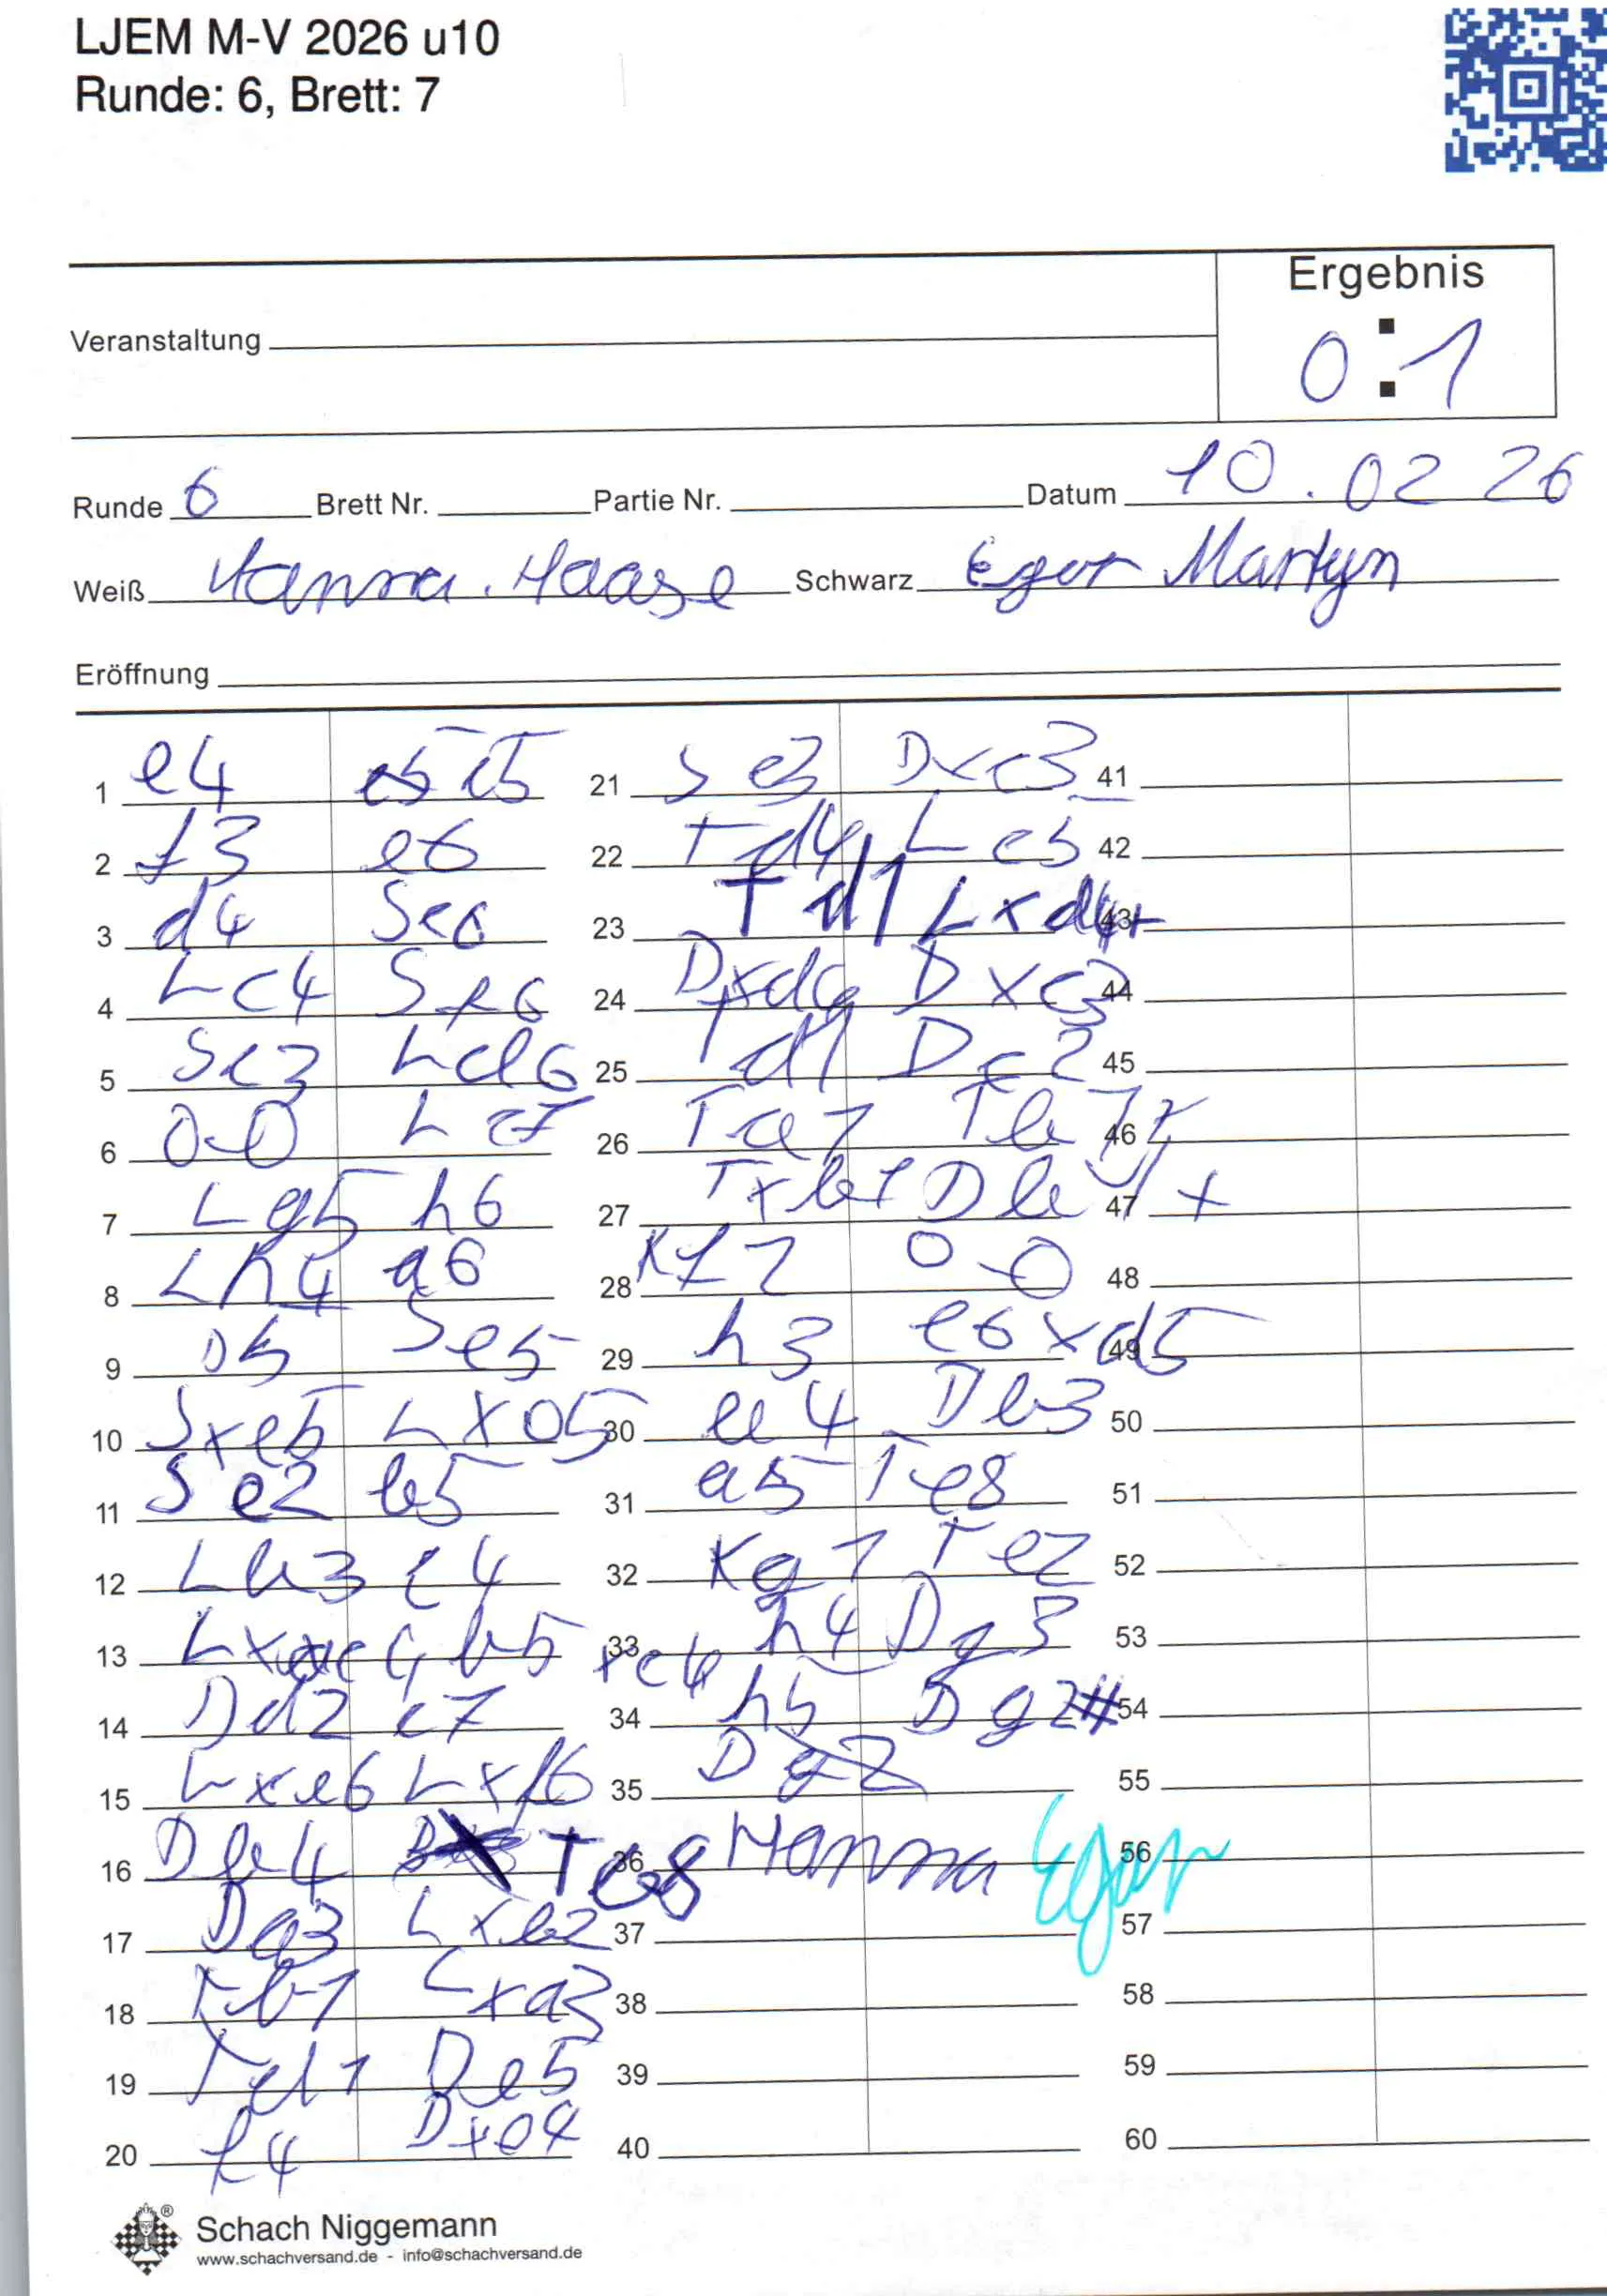 LJEM M-V 2026 u10
Runde: 6, Brett: 7
Ergebnis
0:1
Veranstaltung
Runde 6 Brett Nr. Partie Nr. Datum 10.02 26
Weiß Hanna. Haase Schwarz Egor Martyn
Eröffnung
1 e4 e5 c5
2 f3 e6
3 d4 Sc6
4 Lc4 Sf6
5 Sc3 Ld6
6 0-0 Lc7
7 Lg5 h6
8 Lh4 a6
9 D5 Se5
10 Sxe5 Lxe5
11 Se2 b5
12 Lb3 c4
13 Lxc4 b5xc4
14 Dd2 c7
15 Lxe6 Lxf6
16 Db4 Tc8
17 Da3 Lxb2
18 Tb1 Lxa3
19 Td1 De5
20 f4 Dxe4
21 Se3 Dxc3
22 Td4 Lc5
23 Td1 Lxd4+
24 Dxd4 Dxc3
25 Td1 Dc2
26 Ta1 Tb1
27 Txb1 Db1+
28 Kf2 0-0
29 h3 e6xd5
30 a4 Db3
31 a5 Te8
32 Kg1 Te2
33 h4 Dg3
34 h5 Dg2#
35 Dg2
36 Hanna Egor
37
38
39
40
41
42
43
44
45
46
47
48
49
50
51
52
53
54
55
56
57
58
59
60
Schach Niggemann
www.schachversand.de - info@schachversand.de